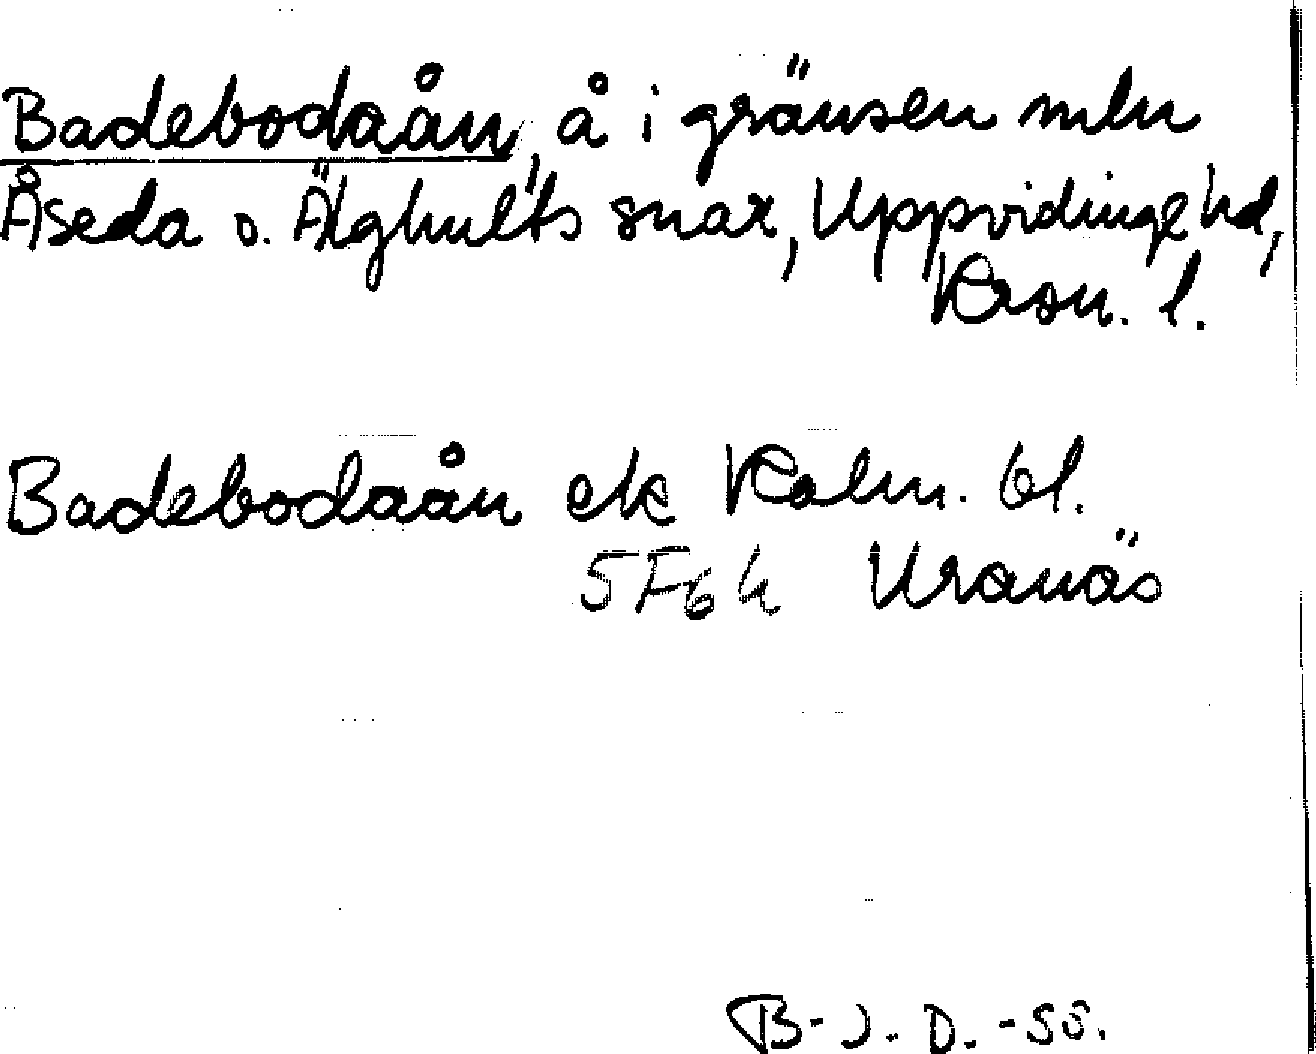 Badebodaån, å i gränsen mln
Åseda o. Älghults snar, Uppvidinge hd,
Kron. l.
Badebodaån ek Kalm. bl.
5F6h Uranäs
B-J. D. -55.